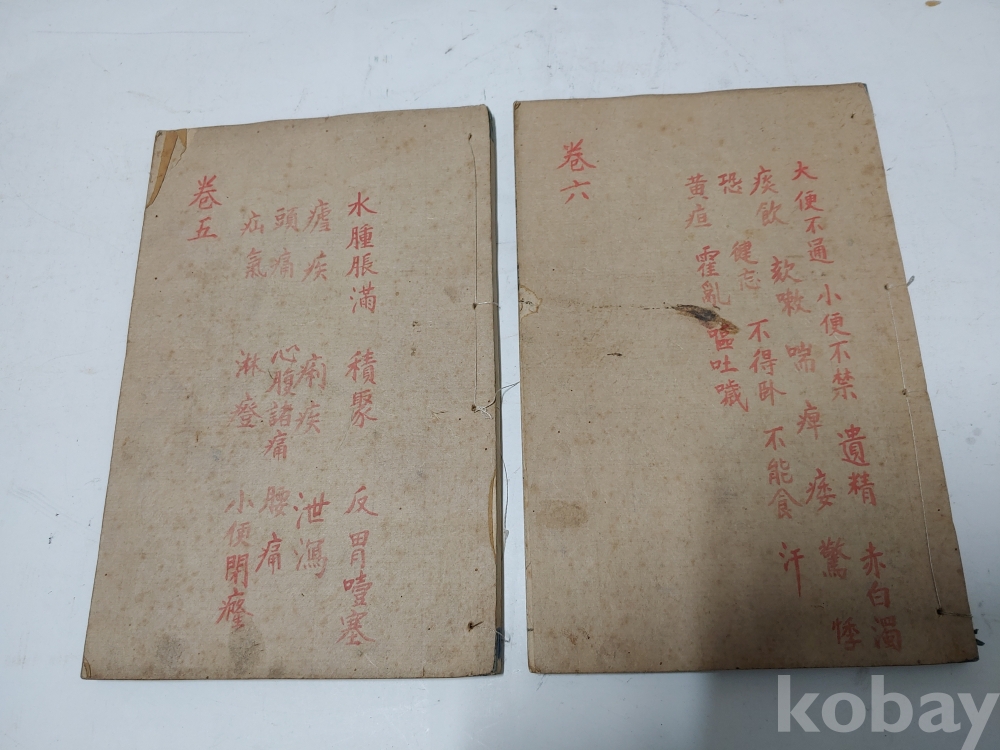 卷五
水腫脹滿 積聚 反胃噎塞
瘧疾 痢疾 泄瀉
頭痛 心腹諸痛 腰痛
疝氣 淋 小便閉癃
卷六
大便不通 小便不禁 遺精 赤白濁
痰飲 欬嗽 喘 痺 痿 驚 悸
恐 健忘 不得臥 不能食 汗
黄疸 霍亂 嘔吐噦
kobay